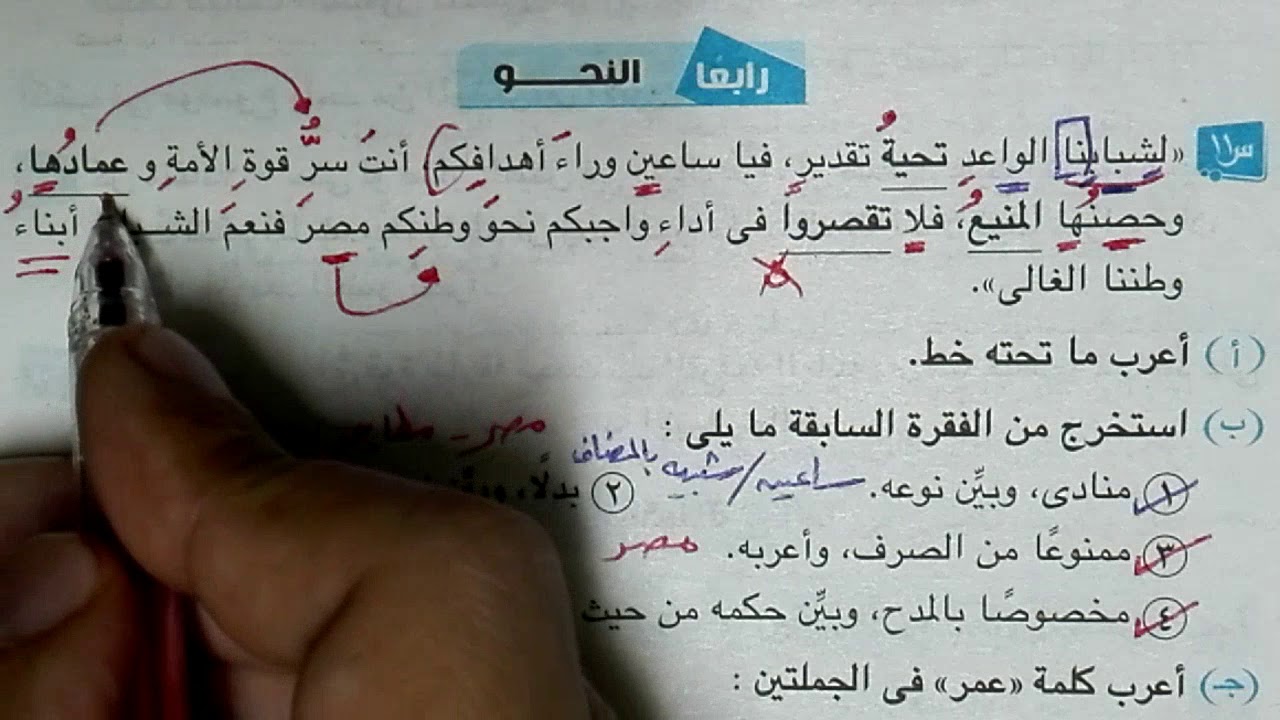 رابعًا النحـــو
س١١
«لشبابنا الواعدِ تحيةُ تقديرٍ، فيا ساعين وراءَ أهدافِكم، أنتَ سرُّ قوةِ الأمةِ و عمادُها،
وحصنُها المنيعُ، فلا تقصروا فى أداءِ واجبكم نحوَ وطنكم مصرَ فنعمَ أبناءُ
وطننا الغالى».
(أ) أعرب ما تحته خط.
(ب) استخرج من الفقرة السابقة ما يلى : مصر -
١ منادى، وبيِّن نوعه. ساعين / شبيه بالمضاف ٢ بدلًا،
٣ ممنوعًا من الصرف، وأعربه. مصر
٤ مخصوصًا بالمدح، وبيِّن حكمه من حيث
(جـ) أعرب كلمة «عمر» فى الجملتين :